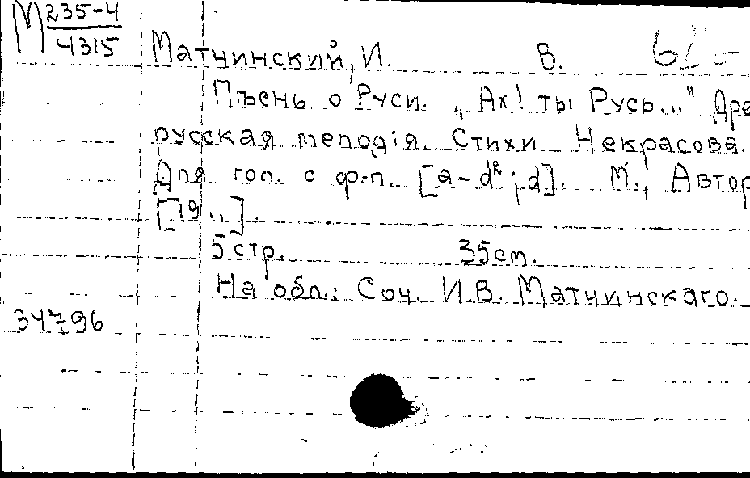 М 235-4
4315
Матчинский, И. В.
Пѣснь о Руси. „Ах! ты Русь..." Дре
русская мелодія. Стихи Некрасова.
Для гол. с ф-п. [a-d²; d]. М., Автор
[19..].
5 стр. 35 см.
На обл.: Соч. И.В. Матчинскаго.
34796